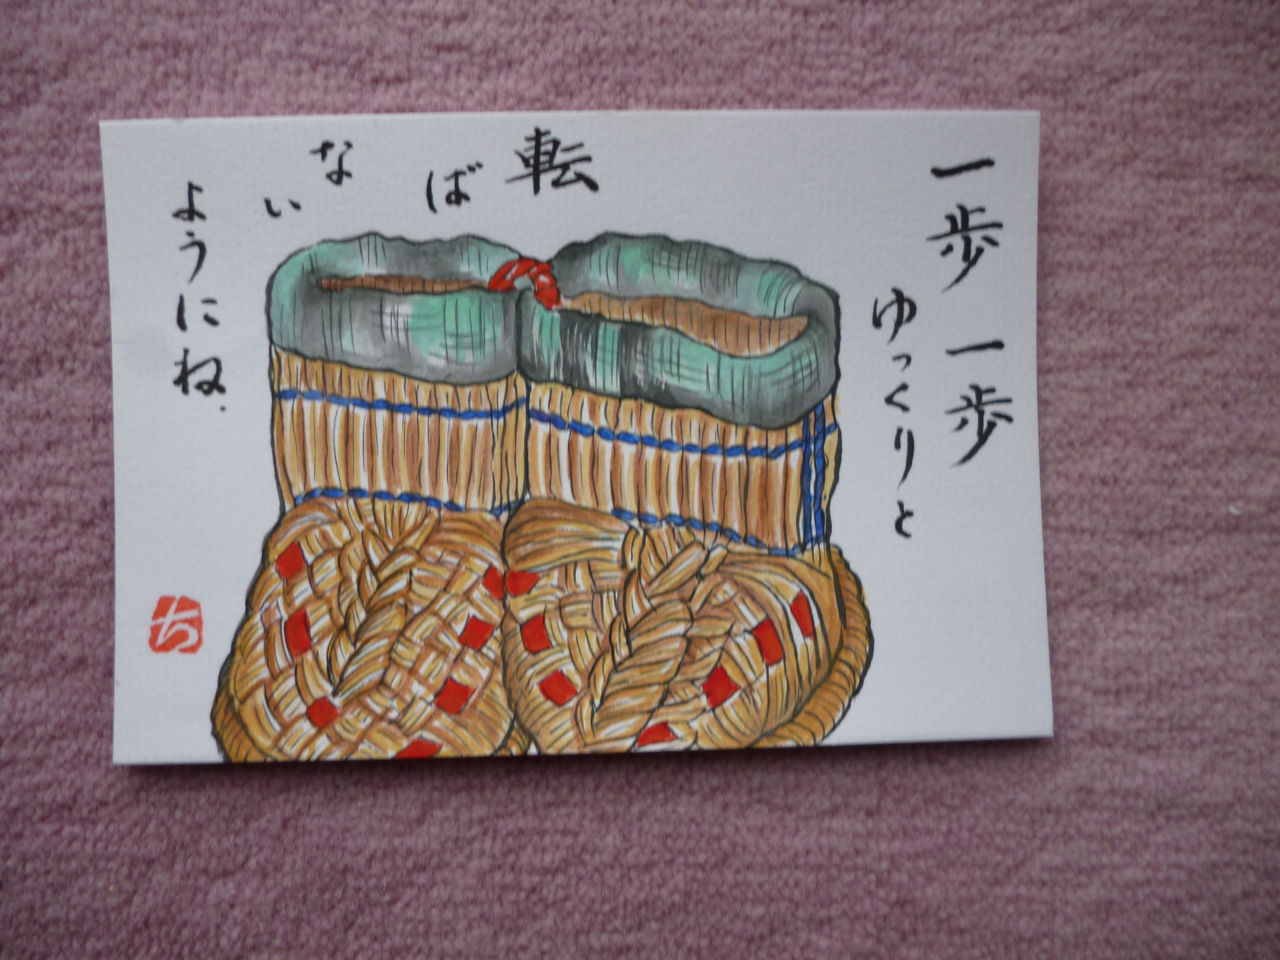 一歩一歩
ゆっくりと
転ばない
ようにね.
ち